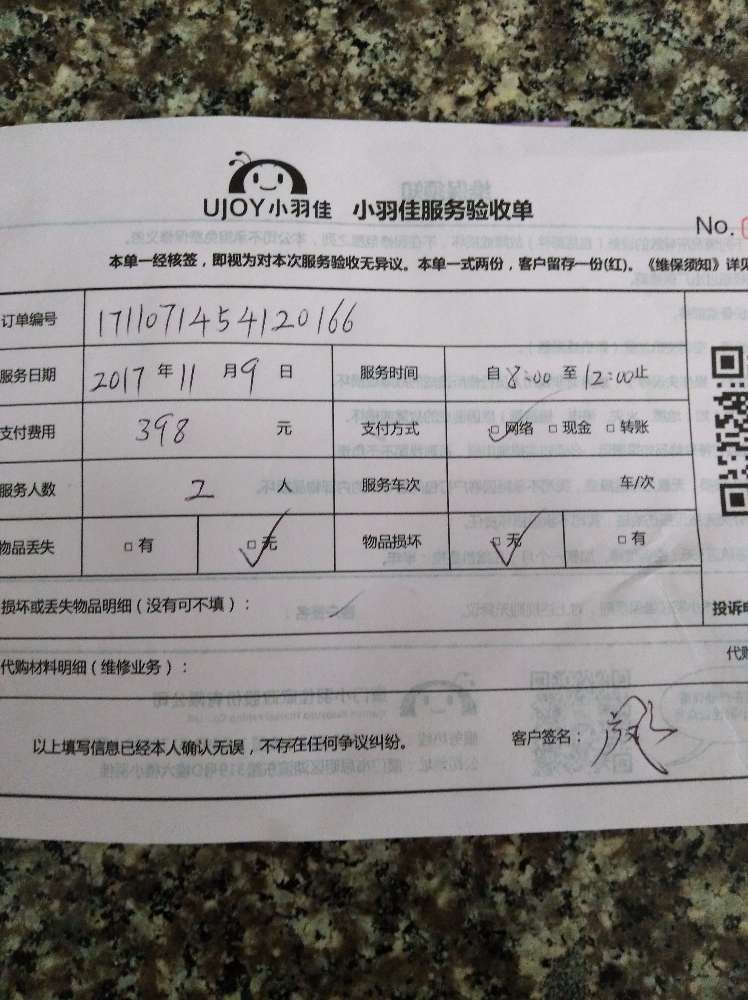 UJOY小羽佳 小羽佳服务验收单
No.
本单一经核签，即视为对本次服务验收无异议。本单一式两份，客户留存一份(红)。《维保须知》详见
订单编号 1711071454120166
服务日期 2017年11月9日 服务时间 自8:00至12:00止
支付费用 398元 支付方式 网络 现金 转账
服务人数 2人 服务车次 车/次
物品丢失 有 无 物品损坏 无 有
损坏或丢失物品明细（没有可不填）：
投诉电
代购材料明细（维修业务）：
代购
以上填写信息已经本人确认无误，不存在任何争议纠纷。 客户签名：